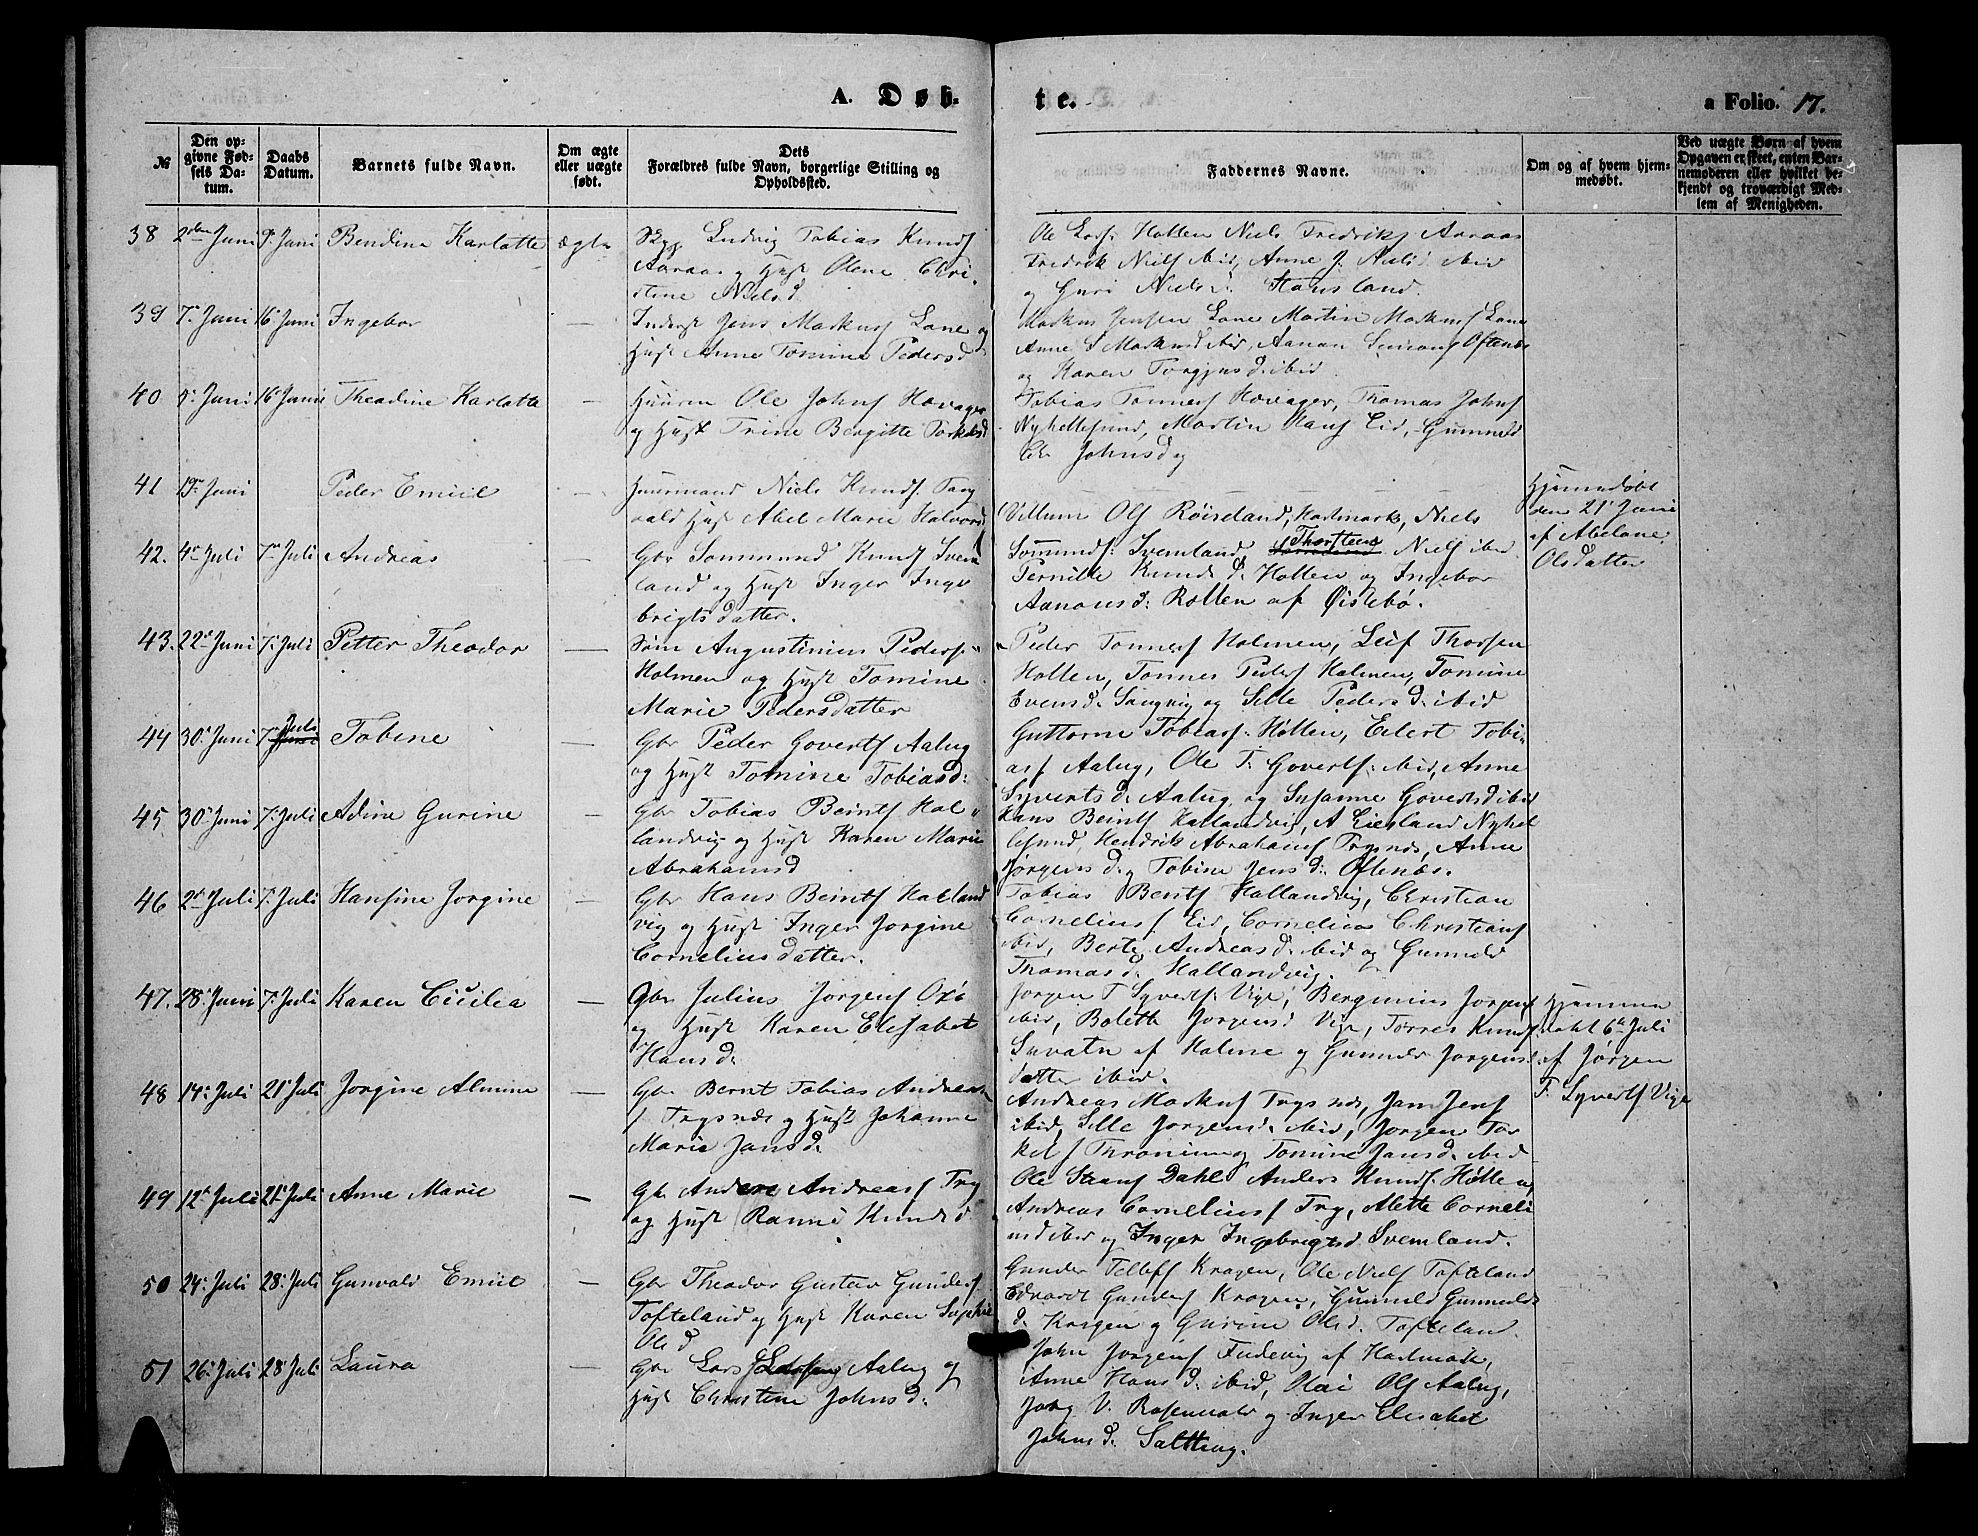 A. Døb-
te.
a Folio. 17.
№
Den opgivne Fødsels Datum.
Daabs Datum.
Barnets fulde Navn.
Om ægte eller uægte født.
Dets Forældres fulde Navn, borgerlige Stilling og Opholdssted.
Faddernes Navne.
Om og af hvem hjemmedøbt.
Ved uægte Børn af hvem Opgaven er skeet, enten Barnemoderen eller hvilket bekjendt og troværdigt Medlem af Menigheden.
38 2den Juni 9. Juni Bendine Karlotte ægte
Ludvig Tobias Knuds
Aaraas og Hust Olene Chri-
stine Nielsd
Ole Hollen Niels Fredriks Aaraas
Fredrik Niels ibid, Anne J. Nielsd ibid
og Guri Nielsd. Hausland.
39 7. Juni 16. Juni Ingebor —
Inderst Jens Markus Lone og
Hust Anne Tomine Pedersd
Markus Jensen Lone Martin Markus Lone
Anne S Markusd ibid, Aanon Simons Oftenes
og Karen Torgjusd. ibid.
40 9. Juni 16. Juni Theodine Karlotte —
Huusm Ole Johns Hovager
og Hust Trine Bergitte Torkelsd
Tobias Tonners Hovager, Thomas Johns
Nyhellesund, Martin Hans Eid, Gunnild
Johnsd
41 19. Juni Peder Emiil —
Huusmand Niels Knuds. Tang
vald Hust Abel Marie Halvorsd
Hjemmedøbt
den 21. Juni
af Abelone
Olsdatter
42. 4. Juli 7. Juli Andreas —
Gbr Sommund Knuds Svem
land og Hust Inger Inge
brigtsdatter.
Villum Ols Røiseland, Hartmark, Niels
Somunds. Svemland, Thorsteen Niels ibid
Pernille Knudsd. Hollen og Ingebor
Aanonsd. Rolten af Øislebø.
43. 22. Juni 7. Juli Petter Theodor —
Søm Augustinius Peders
Holmen og Hust Tomine
Marie Pedersdatter
Peder Tonners Holmen, Leif Thorsen
Hollen, Tonnes Peders Holmen, Tomine
Evensd. Sangvig og Sille Pedersd. ibid
44 30. Juni 7. Juli Tobine —
Gbr Peder Goverts Aalug
og Hust Tomine Tobiasd.
Guttorm Tobias Hollen, Eilert Tobi-
as Aalug, Ole T. Goverts. ibid, Anne
Syvertsd. Aalug og Susanne Govertsd ibid
45 30. Juni 7. Juli Adine Gurine —
Gbr Tobias Beints Hal-
landvig og Hust Karen Marie
Abrahamsd
Hans Beints Hallandvig, A Liesland Nyhel
lesund, Hendrik Abrahams Trysnes, Anne
Jørgensd. og Tobine Jensd. Oftenæs.
46 2. Juli 7. Juli Hansine Jorgine —
Gbr Hans Beints Halland
vig og Hust Inger Jorgine
Corneliusdatter.
Tobias Bents Hallandvig, Christian
Cornelius Eid, Cornelius Christians
ibid, Berte Andreasd. ibid og Gunnild
Thomasd. Hallandvig.
47. 28. Juni 7. Juli Karen Cicilia —
Gbr Julius Jorgens Oxø
og Hust Karen Elisabet
Hansd.
Jorgen T Syverts. Vige, Bergenius Jorgens
ibid, Bolette Jorgensd Vige, Torres Knuds
af Holme og Gunnild Jorgens
datter ibid.
Hjemme
døbt 6te Juli
af Jørgen
T. Syverts Vige
48 14. Juli 21. Juli Jorgine Almine —
Gbr Bernt Tobias Andreas
s Trysnes og Hust Johanne
Marie Jansd.
Andreas Markus Trysnes, Jan Jens
ibid, Sille Jorgensd. ibid, Jorgen Tor
kels Throning og Tomine Jansd. ibid
49 12. Juli 21. Juli Anne Marie —
Gbr Anders Andreas Try
og Hust Ranni Knudsd
Ole Dahl, Anders Knuds. Hølle og
Andreas Cornelius Try, Alette Corneli
usd ibid og Inger Ingebrigtsd. Svemland.
50 24. Juli 28. Juli Gunvald Emiil —
Gbr Theodor Gustav Gunders
Tofteland og Hust Karen Sophie
Olsd
Gunder Tellefs Kragen, Ole Niels Tofteland
Edvardt Gunders Kragen, Gunnild Gunnulds
d. Kragen og Gurine Olsd. Tofteland.
51 26. Juli 28 Juli Laura —
Gbr Lars Aalug og
Hust Christine Johnsd.
John Jorgens Fidevig af Hartmark,
Anne Hansd. ibid, Olai Ols Aalug,
Jorg V. Rosenvold og Inger Elisabet
Johnsd.